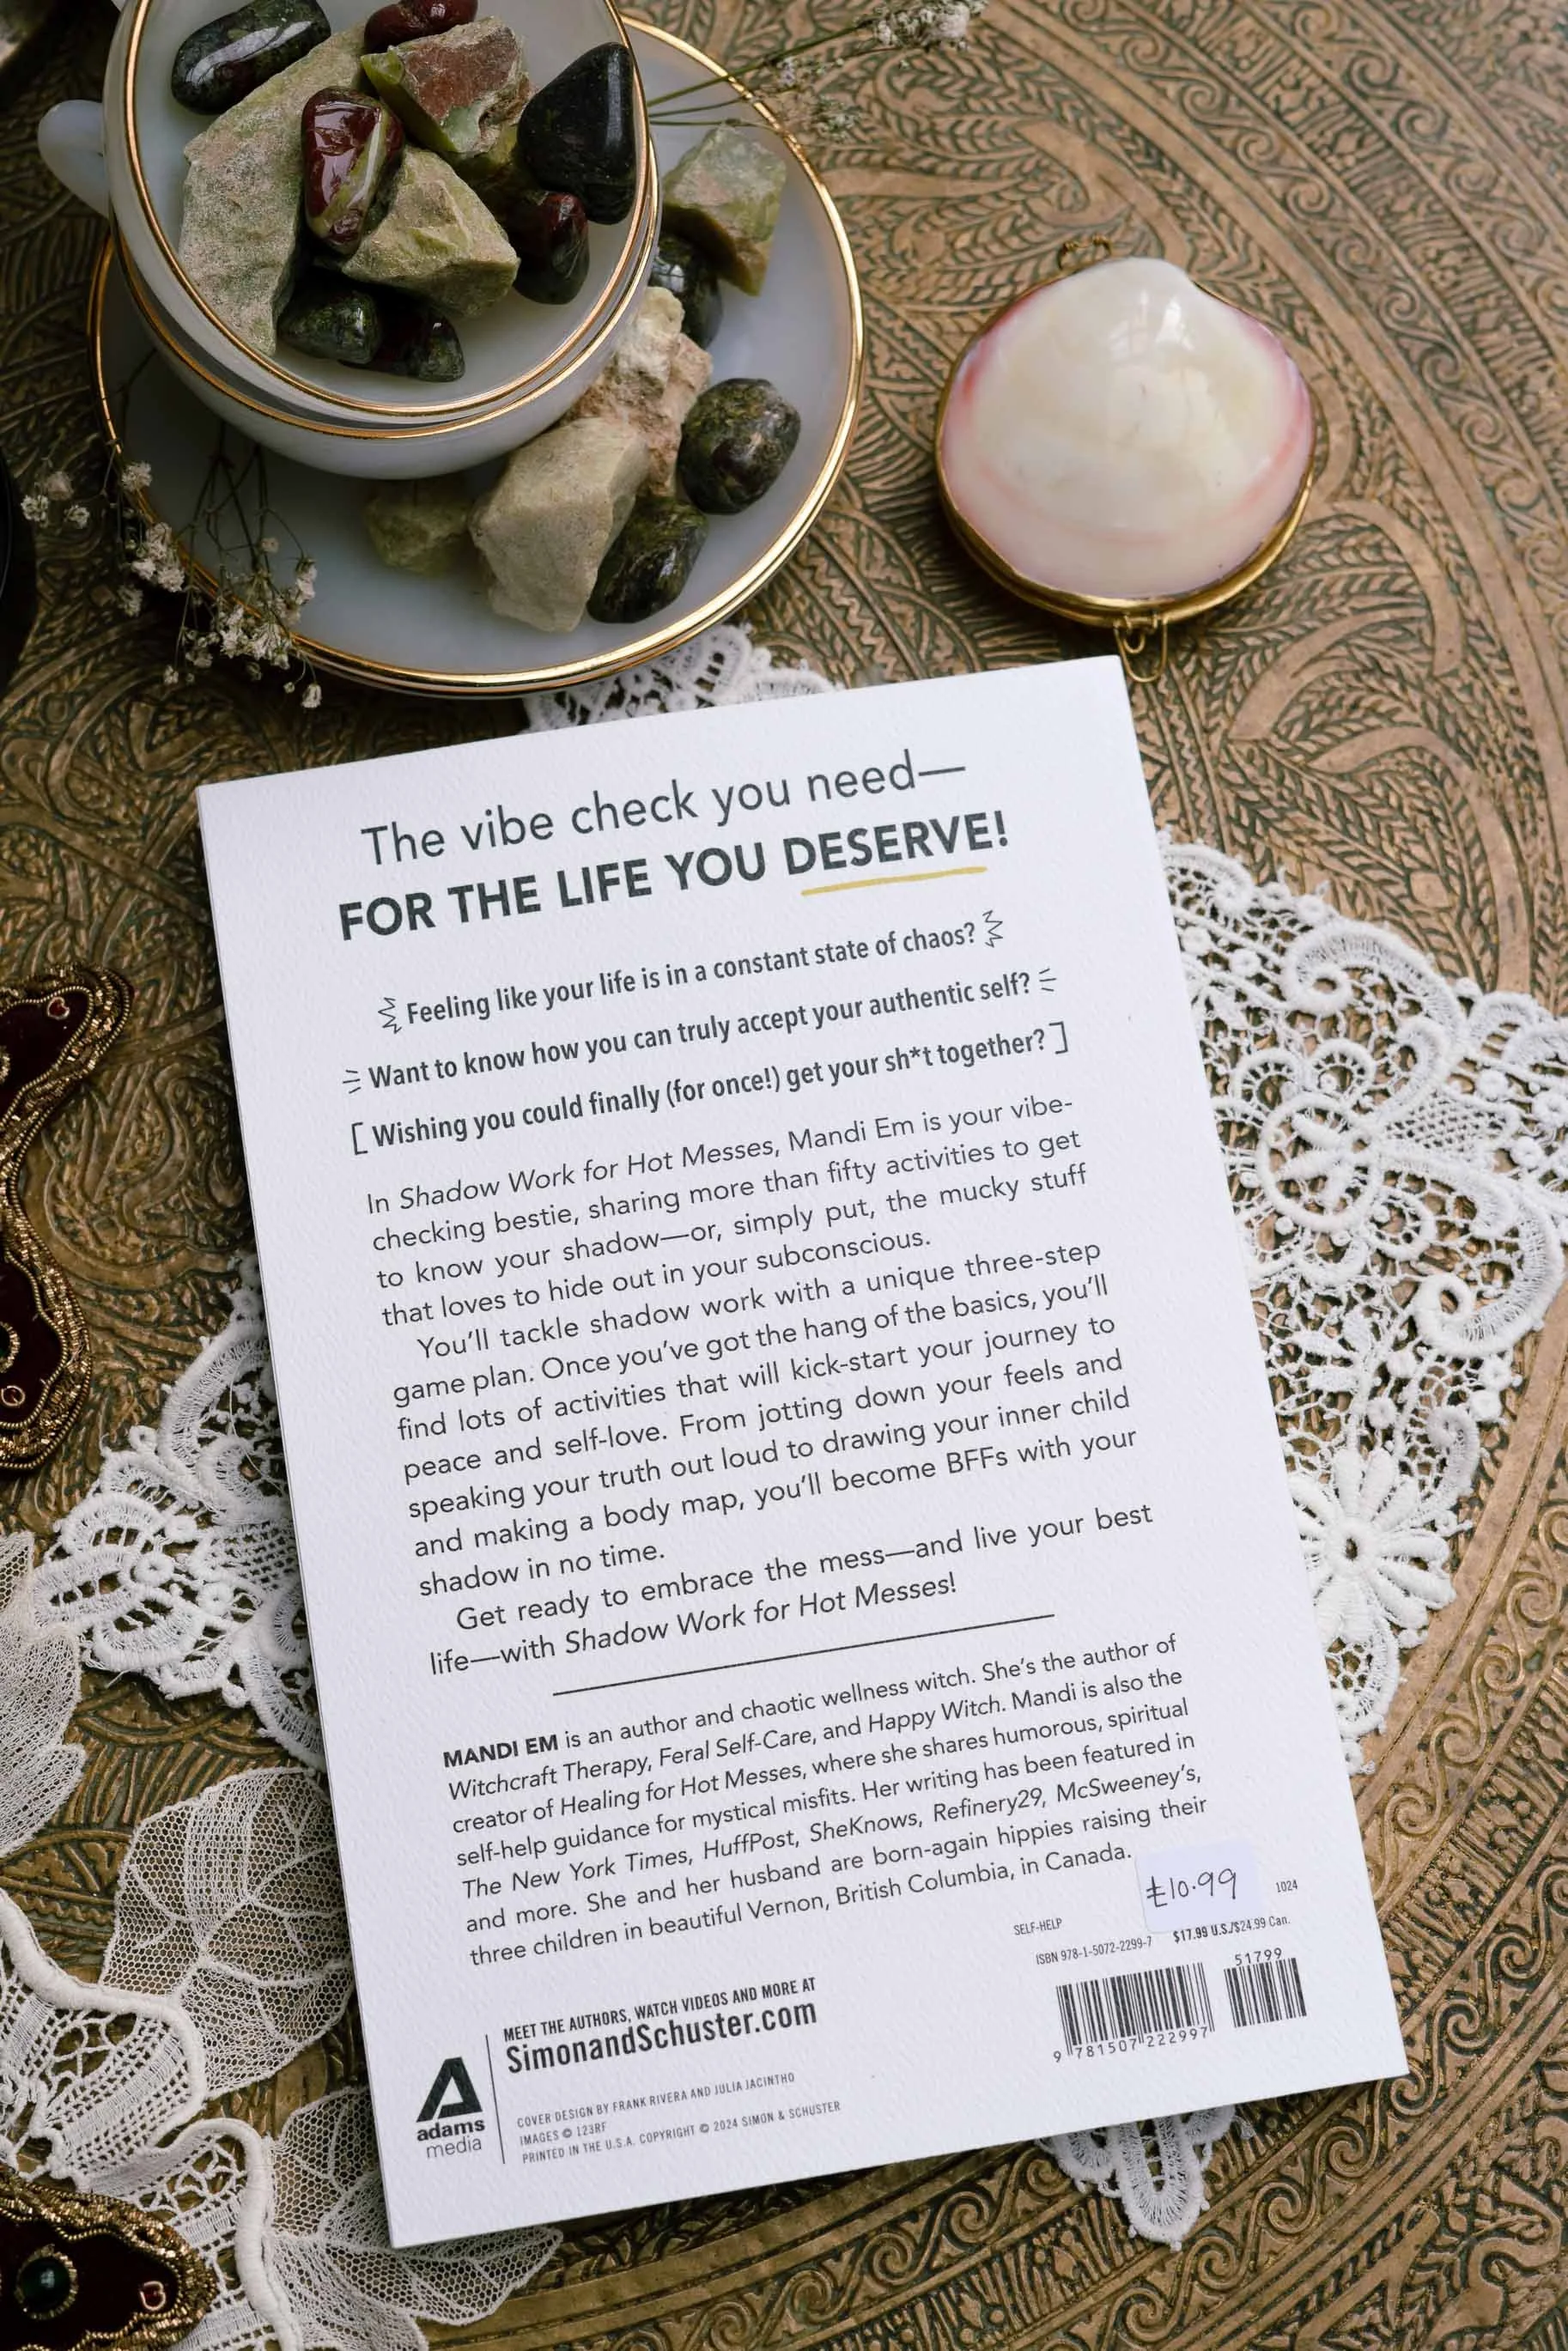 The vibe check you need—
FOR THE LIFE YOU DESERVE!
Feeling like your life is in a constant state of chaos?
Want to know how you can truly accept your authentic self?
[Wishing you could finally (for once!) get your sh*t together?]
In Shadow Work for Hot Messes, Mandi Em is your vibe-
checking bestie, sharing more than fifty activities to get
to know your shadow—or, simply put, the mucky stuff
that loves to hide out in your subconscious.
You'll tackle shadow work with a unique three-step
game plan. Once you've got the hang of the basics, you'll
find lots of activities that will kick-start your journey to
peace and self-love. From jotting down your feels and
speaking your truth out loud to drawing your inner child
and making a body map, you'll become BFFs with your
shadow in no time.
Get ready to embrace the mess—and live your best
life—with Shadow Work for Hot Messes!
MANDI EM is an author and chaotic wellness witch. She's the author of
Witchcraft Therapy, Feral Self-Care, and Happy Witch. Mandi is also the
creator of Healing for Hot Messes, where she shares humorous, spiritual
self-help guidance for mystical misfits. Her writing has been featured in
The New York Times, HuffPost, SheKnows, Refinery29, McSweeney's,
and more. She and her husband are born-again hippies raising their
three children in beautiful Vernon, British Columbia, in Canada.
£10.99
1024
SELF-HELP
ISBN 978-1-5072-2299-7 $17.99 U.S./$24.99 Can.
51799
9 781507 222997
MEET THE AUTHORS, WATCH VIDEOS AND MORE AT
SimonandSchuster.com
adams
media
COVER DESIGN BY FRANK RIVERA AND JULIA JACINTHO
IMAGES © 123RF
PRINTED IN THE U.S.A. COPYRIGHT © 2024 SIMON & SCHUSTER